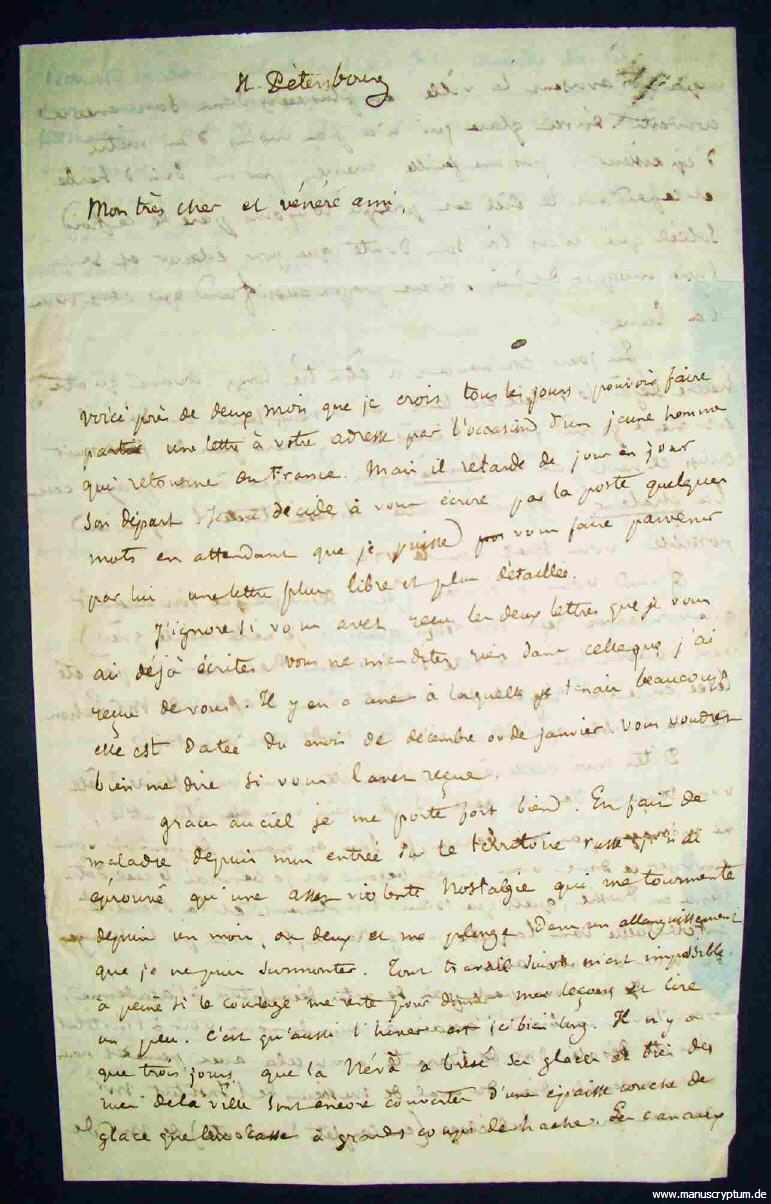 St. Pétersbourg
Mon très cher et vénéré ami,
voici près de deux mois que je crois tous les jours pouvoir faire
partir une lettre à votre adresse par l'occasion d'un jeune homme
qui retourne en France. Mais il retarde de jour en jour
son départ décide à vous écrire par la poste quelques
mots en attendant que je puisse vous faire parvenir
par lui une lettre plus libre et plus détaillée.
J'ignore si vous avez reçu les deux lettres que je vous
ai déjà écrites vous ne m'en dites rien dans celle que j'ai
reçue de vous. Il y en a une à laquelle je tenais beaucoup
elle est datée du mois de décembre ou de janvier. vous voudrez
bien me dire si vous l'avez reçue.
grace au ciel je me porte fort bien. En fait de
maladie depuis mon entrée sur le térritoire russe je n'ai
éprouvé qu'une assez violente Nostalgie qui me tourmente
depuis un mois ou deux et me plonge dans un allanguissement
que je ne puis surmonter. Tout travail suivi m'est impossible
à peine si le courage me reste pour mes leçons et lire
un peu. c'est qu'aussi l'hiver est ici bien long. Il n'y a
que trois jours que la Néva a brisé ses glaces et bien des
rues de la ville sont encore couvertes d'une épaisse couche de
glace que l'on casse à grands coups de hache. Les canaux
www.manuscryptum.de